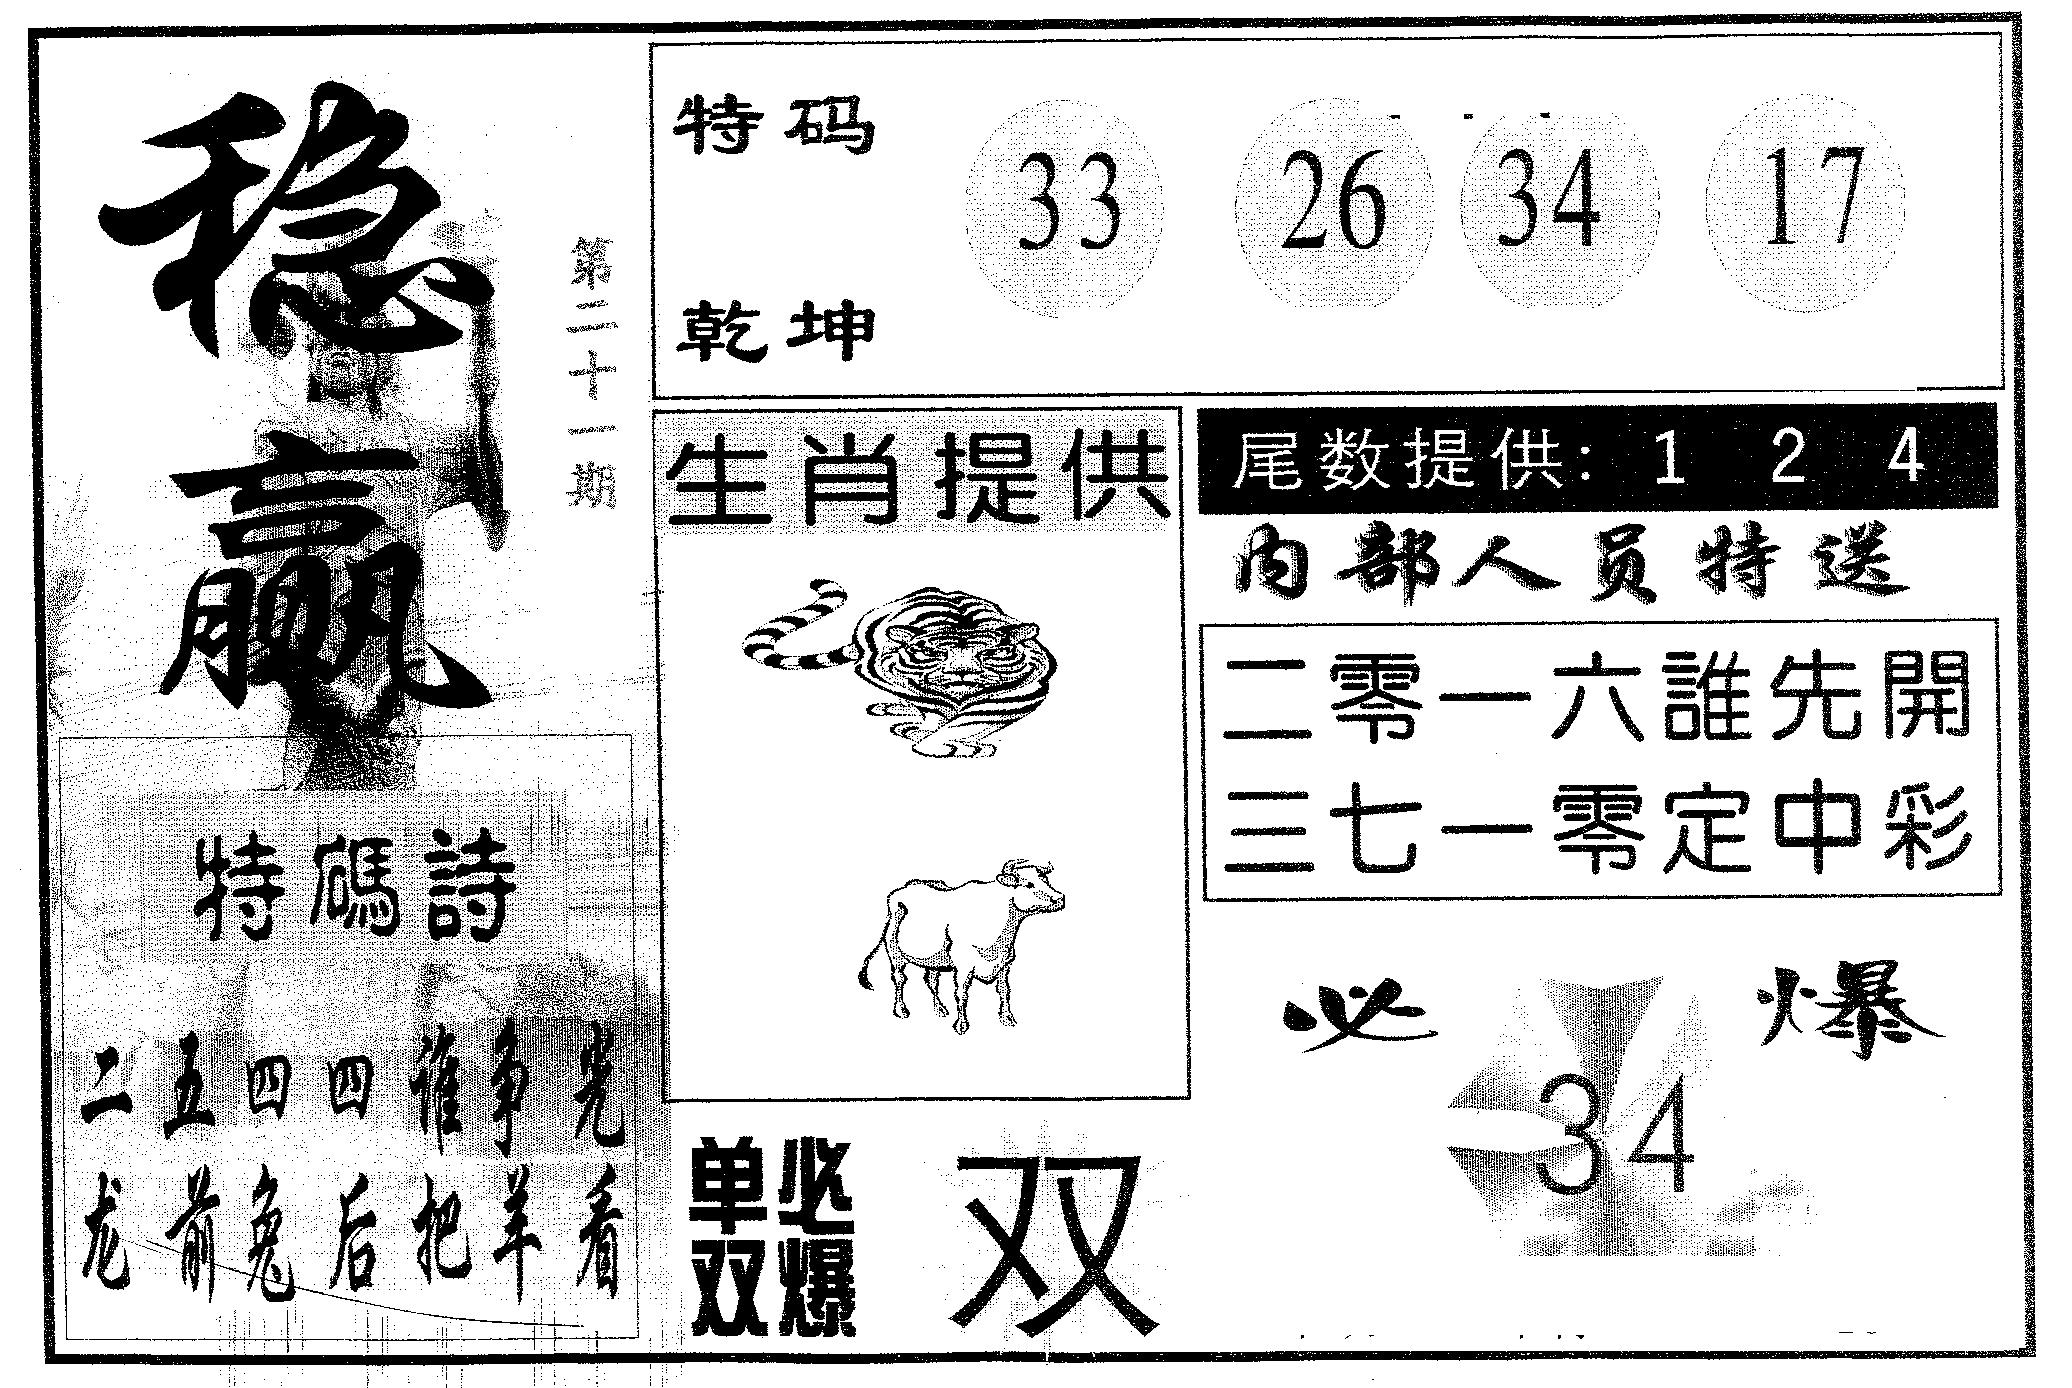 稳赢
第二十一期
特码
乾坤
33 26 34 17
生肖提供
尾数提供: 1 2 4
内部人员特送
二零一六誰先開
三七一零定中彩
特碼詩
二五四四谁争光
龙前兔后把羊看
单双
必爆
双
必爆
34